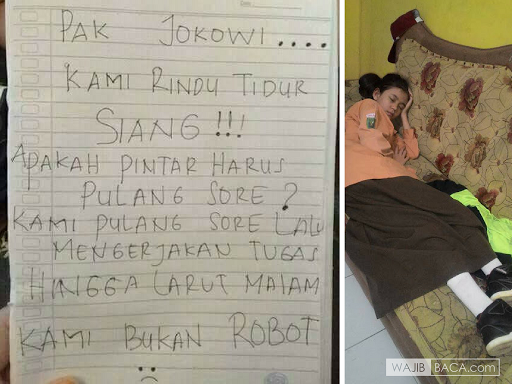 PAK JOKOWI....
KAMI RINDU TIDUR
SIANG!!!
APAKAH PINTAR HARUS
PULANG SORE?
KAMI PULANG SORE LALU
MENGERJAKAN TUGAS
HINGGA LARUT MALAM
KAMI BUKAN ROBOT
WAJIB BACA.com